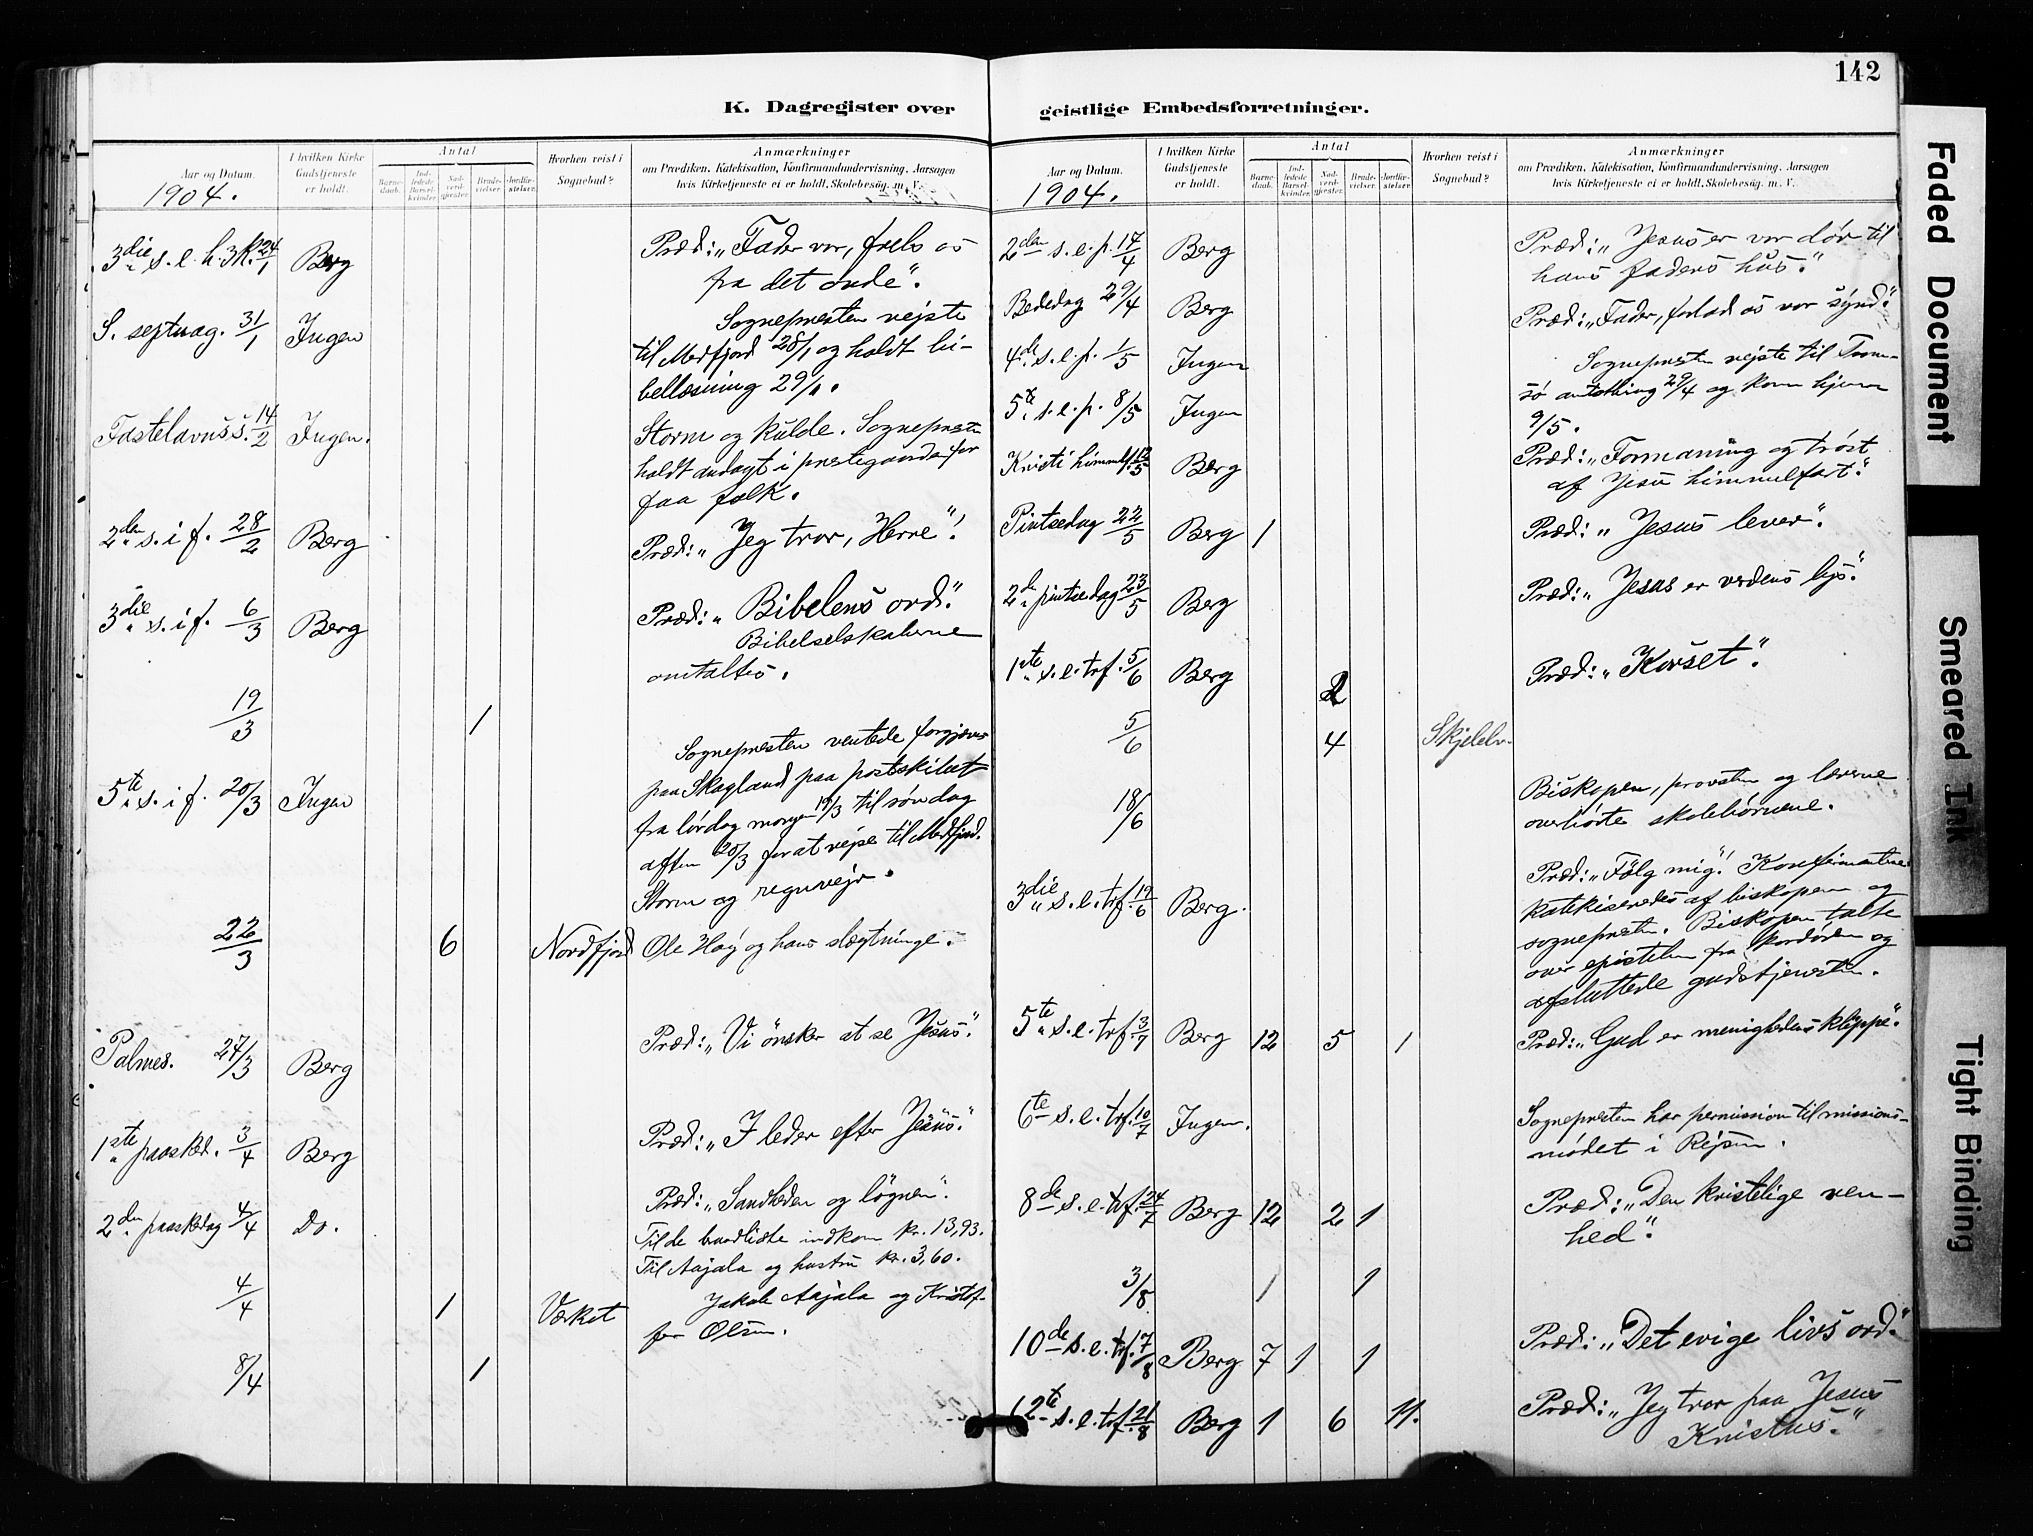 142
K. Dagregister over geistlige Embedsforretninger.
Aar og Datum.
1904.
I hvilken Kirke Gudstjeneste er holdt.
Antal
Barnedaab.
Indledede Barselkvinder.
Nadverdgjester.
Brudevielser.
Jordfæstelser.
Hvorhen reist i Sognebud?
Anmærkninger
om Prædiken, Katekisation, Konfirmandundervisning, Aarsagen
hvis Kirketjeneste ei er holdt, Skolebesøg. m. V.
3die s. e. h. 3 k. 24/1 Berg Præd: „Fader vor, frels os
fra det onde".
S. septuag. 31/1 Ingen Sognepresten rejste
til Medfjord 28/1 og holdt bi-
bellæsning 29/1.
Fastelavns s. 14/2 Ingen. Storm og kulde. Sognepresten
holdt andagt i prestegaarden for
faa folk.
2den s. i f. 28/2 Berg Præd: „Jeg tror, Herre"!
3die s. i f. 6/3 Berg Præd: „Bibelens ord."
Bibelselskaberne
omtaltes.
19/3 1
5te s. i f. 20/3 Ingen Sognepresten ventede forgjæves
paa Skagland paa postskibet
fra lørdag morgen 19/3 til søndag
aften 20/3 for at rejse til Medfjord.
Storm og regnvejr.
22/3 6 Nordfjord Ole Høy og hans slægtninge.
Palmes. 27/3 Berg Præd: „Vi ønsker at se Jesus."
1ste paasked. 3/4 Berg Præd: „I leder efter Jesus."
2den paaskedag 4/4 Do. Præd: „Sandheden og løgnen".
Til de brandlidte indkom kr. 13,93.
Til Aajala og hustru kr. 3,60.
4/4 1 Værket Jakob Aajala og Kristof-
fer Olsen.
8/4 1
Aar og Datum.
1904.
I hvilken Kirke Gudstjeneste er holdt.
Antal
Barnedaab.
Indledede Barselkvinder.
Nadverdgjester.
Brudevielser.
Jordfæstelser.
Hvorhen reist i Sognebud?
Anmærkninger
om Prædiken, Katekisation, Konfirmandundervisning, Aarsagen
hvis Kirketjeneste ei er holdt, Skolebesøg. m. V.
2den s. e. p. 17/4 Berg Præd: „Jesus er vor dør til
hans faders hus."
Bededag 29/4 Berg Præd: „Fader, forlad os vor synd."
4de s. e. p. 1/5 Ingen Sognepresten rejste til Trom-
5te s. e. p. 8/5 Ingen sø amtsting 29/4 og kom hjem
9/5.
Kristi himmelf. 12/5 Berg Præd: „Formaning og trøst
af Jesu himmelfart."
Pintsedag 22/5 Berg 1 Præd: „Jesus lever".
2den pintsedag 23/5 Berg Præd: „Jesus er verdens lys."
1ste s. e. tref. 5/6 Berg 2 Præd: „Korset".
5/6 4 Skjelelv.
18/6 Biskopen, provsten og lærerne
overhørte skolebørnene.
3die s. e. tref. 19/6 Berg. Præd: „Følg mig"! Konfirmanterne
katekiseredes af biskopen og
sognepresten. Biskopen talte
over epistelen fra kordøren og
afsluttede gudstjenesten.
5te s. e. tref. 3/7 Berg 12 5 1 Præd: „Gud er menighedens klippe".
6te s. e. tref. 10/7 Ingen. Sognepresten har permission til missions-
mødet i Rejsen.
8de s. e. tref. 24/7 Berg 12 2 1 Præd: „Den kristelige ven-
hed".
3/8. 1 1
10de s. e. tref. 7/8 Berg 7 1 1 Præd: „Det evige livs ord."
12te s. e. tref. 21/8 Berg 1 6 11. Præd: „Jeg tror paa Jesus
Kristus."
Faded Document
Smeared Ink
Tight Binding